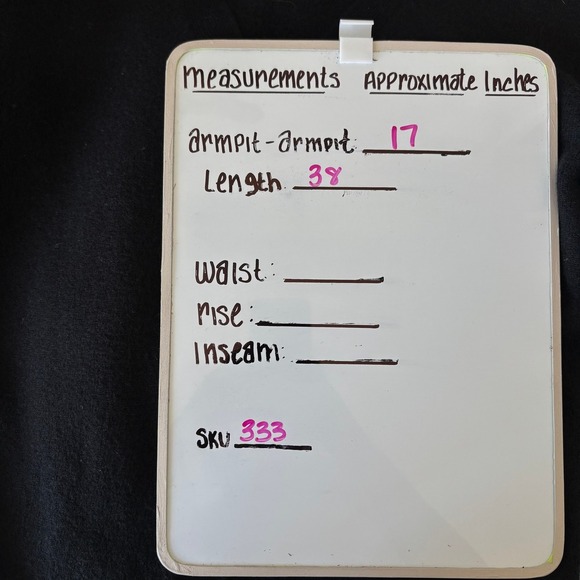 measurements Approximate Inches
armpit-armpit: 17
Length 38
waist:
rise:
Inseam:
SKU 333